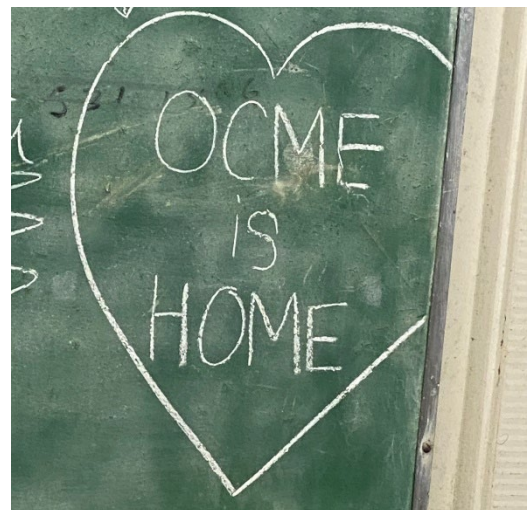 OCME
is
HOME